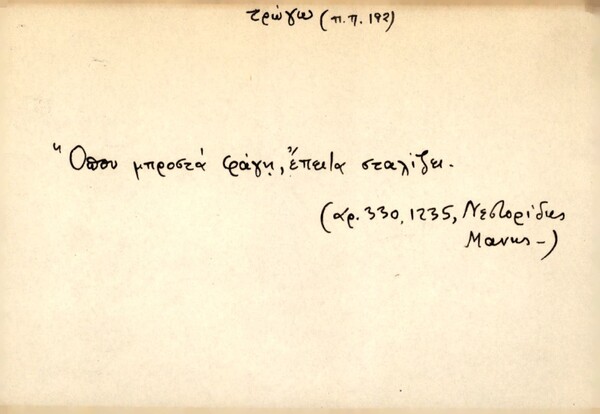 τρώγω (π.π. 192)
"Οπου μπροστά φάγῃ, ἔπειτα σταλίζει.
(αρ. 330, 1235, Νεστορίδης
Μανης -)